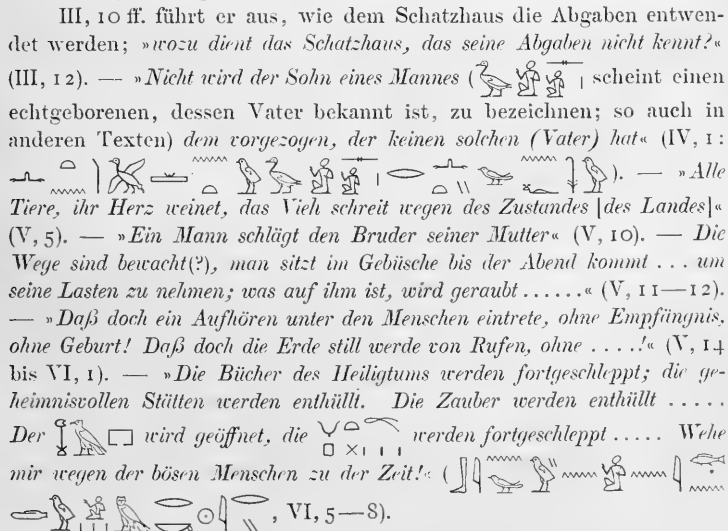 III, 10 ff. führt er aus, wie dem Schatzhaus die Abgaben entwen-
det werden; »wozu dient das Schatzhaus, das seine Abgaben nicht kennt?«
(III, 12). — »Nicht wird der Sohn eines Mannes ( scheint einen
echtgeborenen, dessen Vater bekannt ist, zu bezeichnen; so auch in
anderen Texten) dem vorgezogen, der keinen solchen (Vater) hat« (IV, 1:
). — »Alle
Tiere, ihr Herz weinet, das Vieh schreit wegen des Zustandes [des Landes]«
(V, 5). — »Ein Mann schlägt den Bruder seiner Mutter« (V, 10). — Die
Wege sind bewacht(?), man sitzt im Gebüsche bis der Abend kommt ... um
seine Lasten zu nehmen; was auf ihm ist, wird geraubt ......« (V, 11—12).
— »Daß doch ein Aufhören unter den Menschen eintrete, ohne Empfängnis,
ohne Geburt! Daß doch die Erde still werde von Rufen, ohne ....!« (V, 14
bis VI, 1). — »Die Bücher des Heiligtums werden fortgeschleppt; die ge-
heimnisvollen Stätten werden enthüllt. Die Zauber werden enthüllt .....
Der wird geöffnet, die werden fortgeschleppt ..... Wehe
mir wegen der bösen Menschen zu der Zeit!« (
, VI, 5—8).